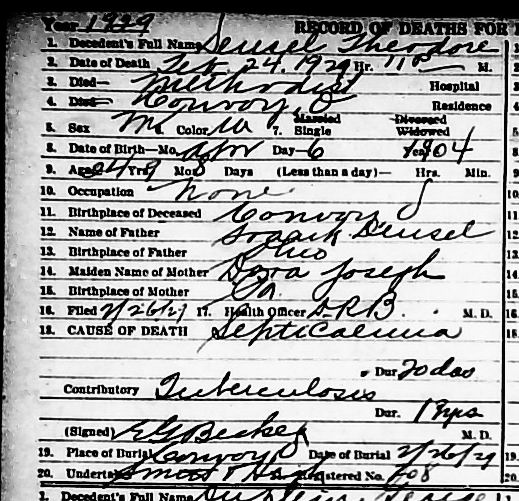 Year 1929 RECORD OF DEATHS FOR
1. Decedent's Full Name Deusel Theodore
2. Date of Death Feb 24, 1929 Hr. 11 P M.
3. Died— Methodist Hospital
4. Died— Convoy, O Residence
5. Sex M 6. Color W 7. Married Single Divorced Widowed
8. Date of Birth—Mo. Apr Day—6 Year 1904
9. Age 24 Yrs. 9 Mos. Days (Less than a day)— Hrs. Min.
10. Occupation None
11. Birthplace of Deceased Convoy O
12. Name of Father Deusel
13. Birthplace of Father Ohio
14. Maiden Name of Mother Dora Joseph
15. Birthplace of Mother Pa.
16. Filed 2/26/29 17. Health Officer A.R.B. M. D.
18. CAUSE OF DEATH Septicaemia
Dur 20 das
Contributory Tuberculosis
Dur. yrs
(Signed) E G Becker M. D.
19. Place of Burial Convoy O Date of Burial 2/26/29
20. Undertaker Registered No. 708
1. Decedent's Full Name